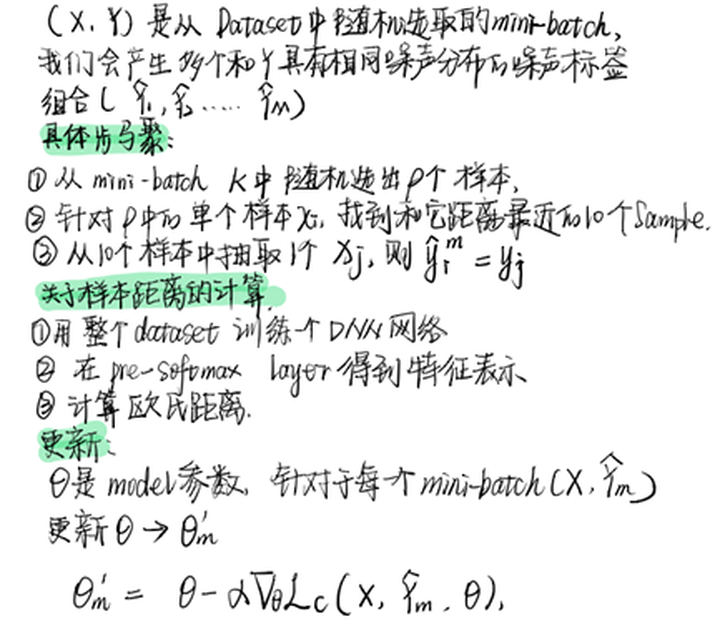 (X, Y) 是从 Dataset中随机选取的mini-batch,
我们会产生多个和Y具有相同噪声分布的噪声标签
组合( Ŷ₁, Ŷ₂ ..... Ŷm)
具体步骤:
① 从 mini-batch K中 随机选出 ρ个 样本,
② 针对 ρ中的 单个样本xi, 找到和它距离最近的10个Sample.
③ 从10个样本中抽取1个 xj, 则 ŷᵢᵐ = yj
关于样本距离的计算.
①用 整个dataset 训练一个DNN网络
② 在 pre-softmax layer得到特征表示
③ 计算欧氏距离.
更新:
θ是 model参数, 针对于每个mini-batch(X, Ŷm)
更新θ → θ'm
θ'm = θ-α∇θLc(X, Ŷm, θ),